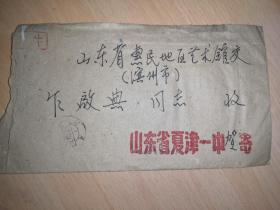 山东省惠民地区艺术馆交
(滨州市)
乍啟典 同志 收
山东省夏津一中 贺寄